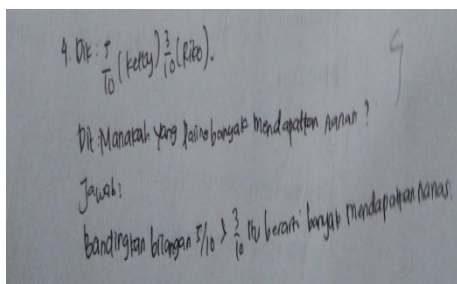 4. Dik : 5/10 (ketty) 3/10 (Riko).
Dit : Manakah yang paling banyak mendapatkan nanas ?
Jawab :
bandingkan bilangan 5/10 > 3/10 itu berarti banyak mendapatkan nanas.